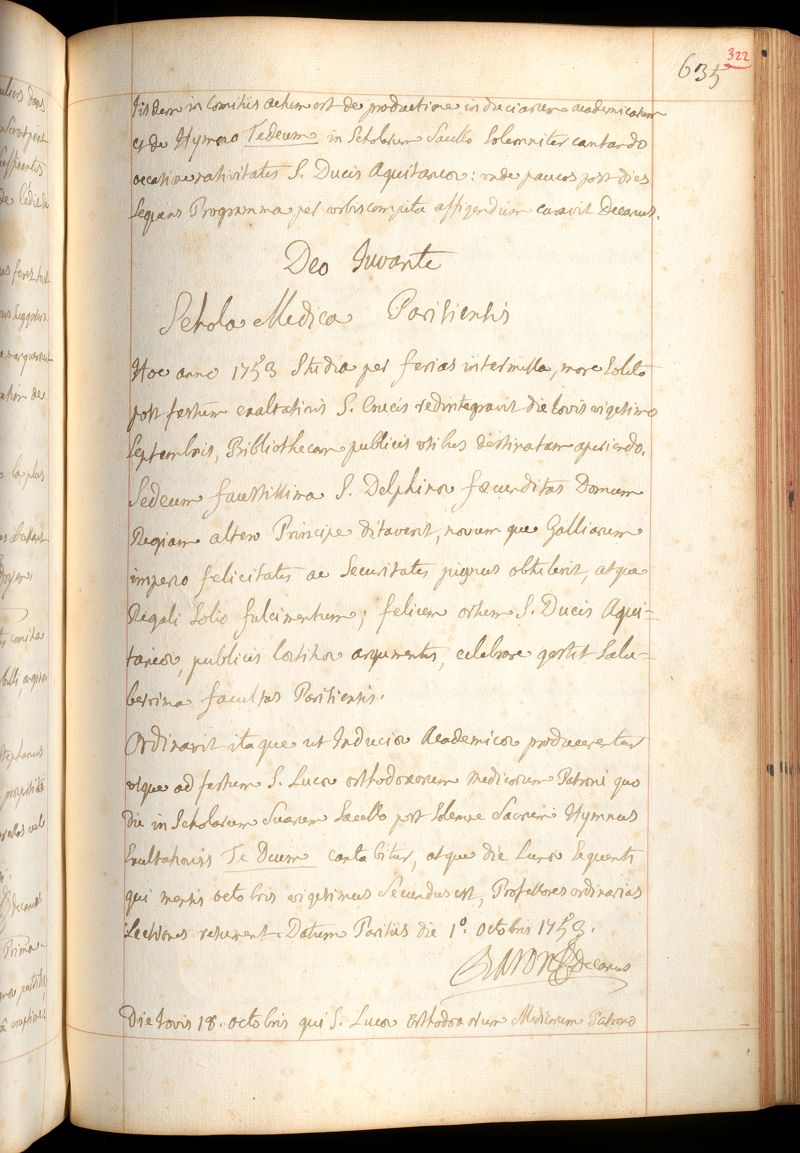 322
635
Iisdem in Comitiis actum est de productione induciarum academicarum
et de Hymno Tedeum in Scholarum Sacello Solemniter cantando
occasione nativitatis S. Ducis Aquitaniæ: unde paucos post dies
Sequens Programma per urbis compita affigendum curavit Decanus.
Deo Juvante
Schola Medica Parisiensis
Hoc anno 1753 Studia per ferias intermissa, more Solito
post festum exaltationis S. Crucis redintegravit die Iovis vigesimo
Septembris, Bibliothecam publicis usibus destinatam aperiendo.
Sed cum faustissima S. Delphinæ fæcunditas Domum
Regiam altero Principe ditaverit, novumque Galliarum
imperio felicitatis ac Securitatis pignus obtulerit, atque
Regali Solio fulcimentum; felicem ortum S. Ducis Aqui-
taniæ, publicis lætitiæ argumentis, celebrare gestit Salu-
berrima facultas Parisiensis.
Ordinavit itaque ut Induciæ Academicæ producerentur
usque ad festum S. Lucæ orthodoxorum medicorum Patroni quo
die in Scholarum Suarum Sacello post Solemne Sacrum Hymnus
Exultationis Te Deum cantabitur, atque die Lunæ Sequenti
qui mensis octobris vigesimus Secundus est, Professores ordinarias
Lectiones resument. Datum Parisiis die 1º. octobris 1753.
BARON Decanus
Die Iovis 18. octobris qui S. Lucæ Orthodoxorum Medicorum Patrono